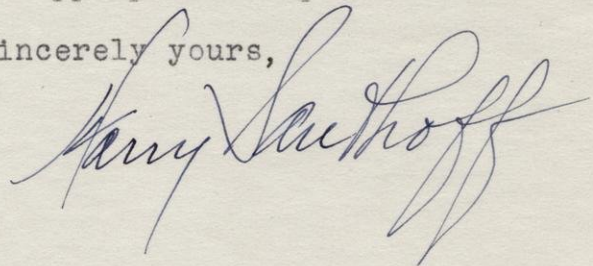 incerely yours,
Harry Sauthoff